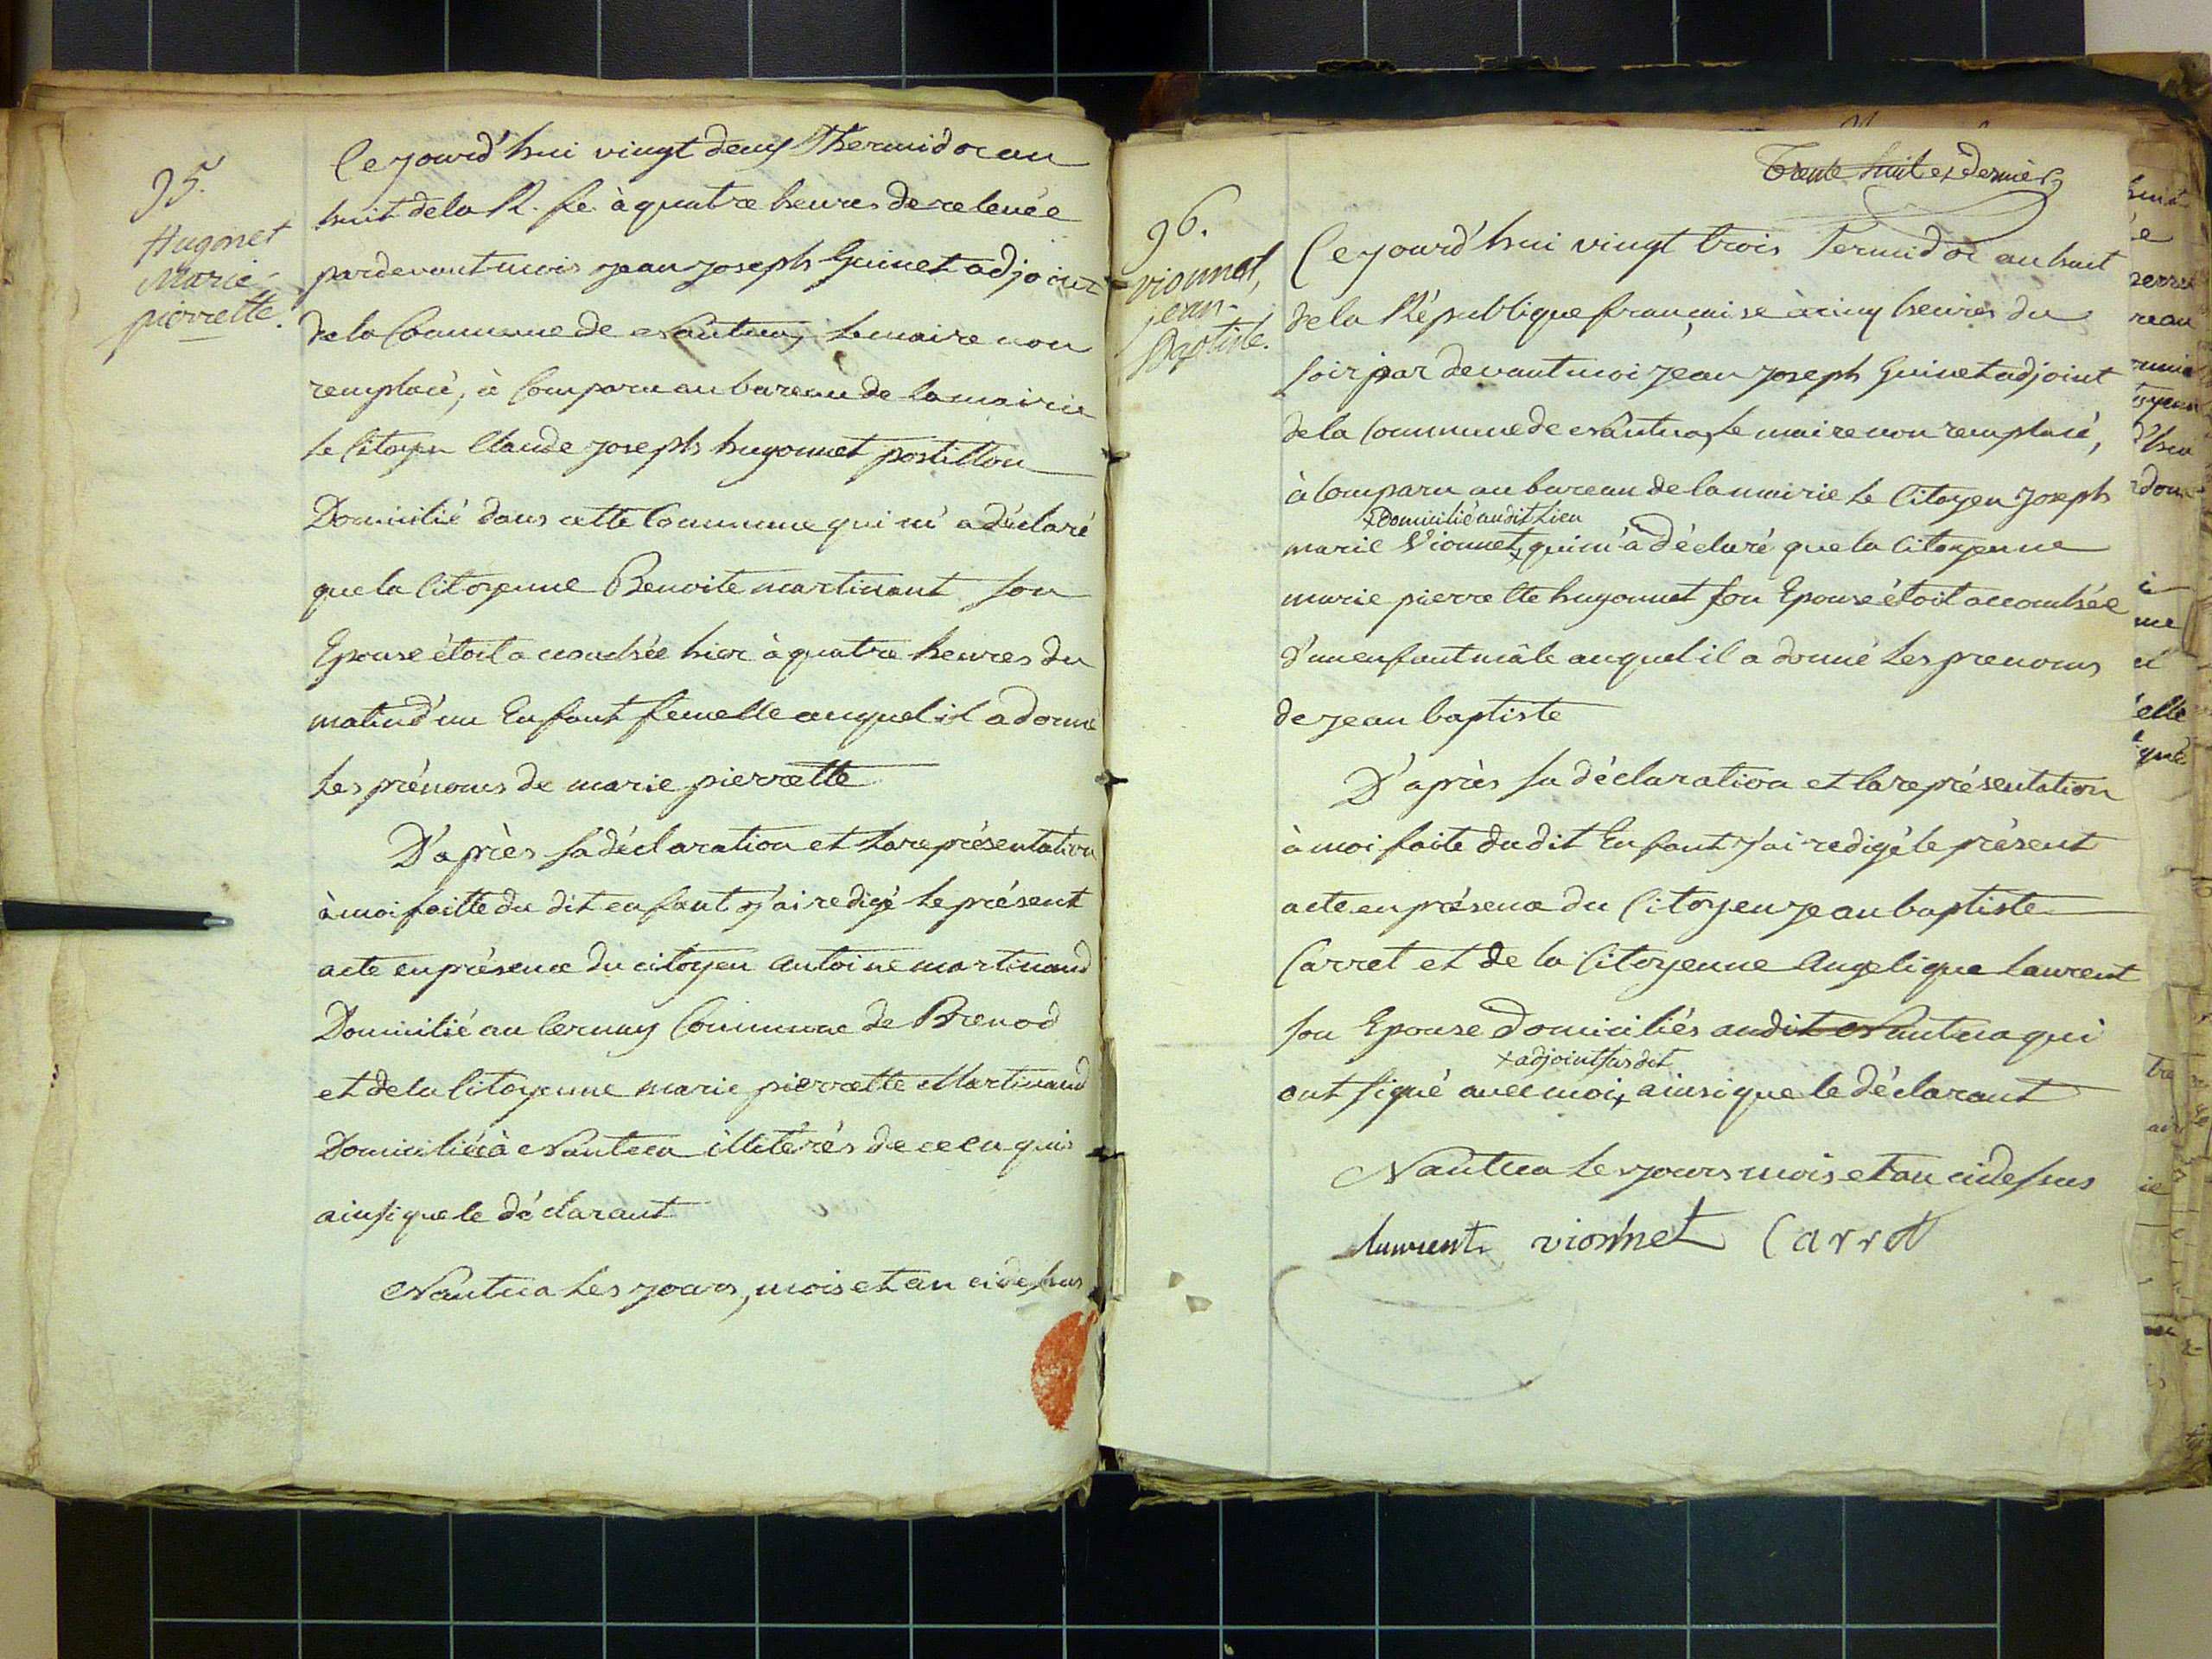 95.
Hugonet
Marie
pierrette.
Cejourd'hui vingt deux Thermidor an
huit de la R. fe. à quatre heures de relevée
pardevant mois jean joseph Guinet adjoint
de la Commune de Nantua, le maire non
remplacé, à Comparu au bureau de la mairie
le Citoyen Claude joseph hugonnet postillon
Domicilié dans cette Commune qui m'a déclaré
que la Citoyenne Benoite martinant son
Epouse étoit accouchée hier à quatre heures du
matin d'un Enfant femelle auquel il a donné
les prénoms de marie pierrette
D'après sa déclaration et la représentation
à moi faitte du dit enfant j'ai redigé le présent
acte en présence du citoyen antoine martinand
Domicilié au Commune de Brenod
et de la Citoyenne marie pierrette Martinand
Domiciliée à Nantua illitérés de ce enquis
ainsi que le déclarant
Nantua les jours, mois et an cidessus
Trente huit et dernier
96.
vionnet,
jean-
Baptiste.
Cejourd'hui vingt trois Termidor an huit
de la République française à cinq heures du
soir par devant moi jean joseph Guinet adjoint
de la Commune de Nantua, le maire non remplacé,
à Comparu au bureau de la mairie le Citoyen joseph
x Domicilié audit Lieu
marie Vionnet x qui m'à déclaré que la Citoyenne
marie pierrette hugonnet son Epouse étoit accouchée
d'un enfant mâle auquel il a donné les prenoms
de jean baptiste
D'après sa déclaration et la représentation
à moi faite dudit Enfant j'ai redigé le présent
acte en présence du Citoyen jean baptiste
Carret et de la Citoyenne Angelique Laurent
son Epouse Domiciliés audit Nantua qui
x adjoint susdit
ont signé avec moi x ainsi que le déclarant
Nantua les jours mois et an cidessus
laurent vionnet Carret